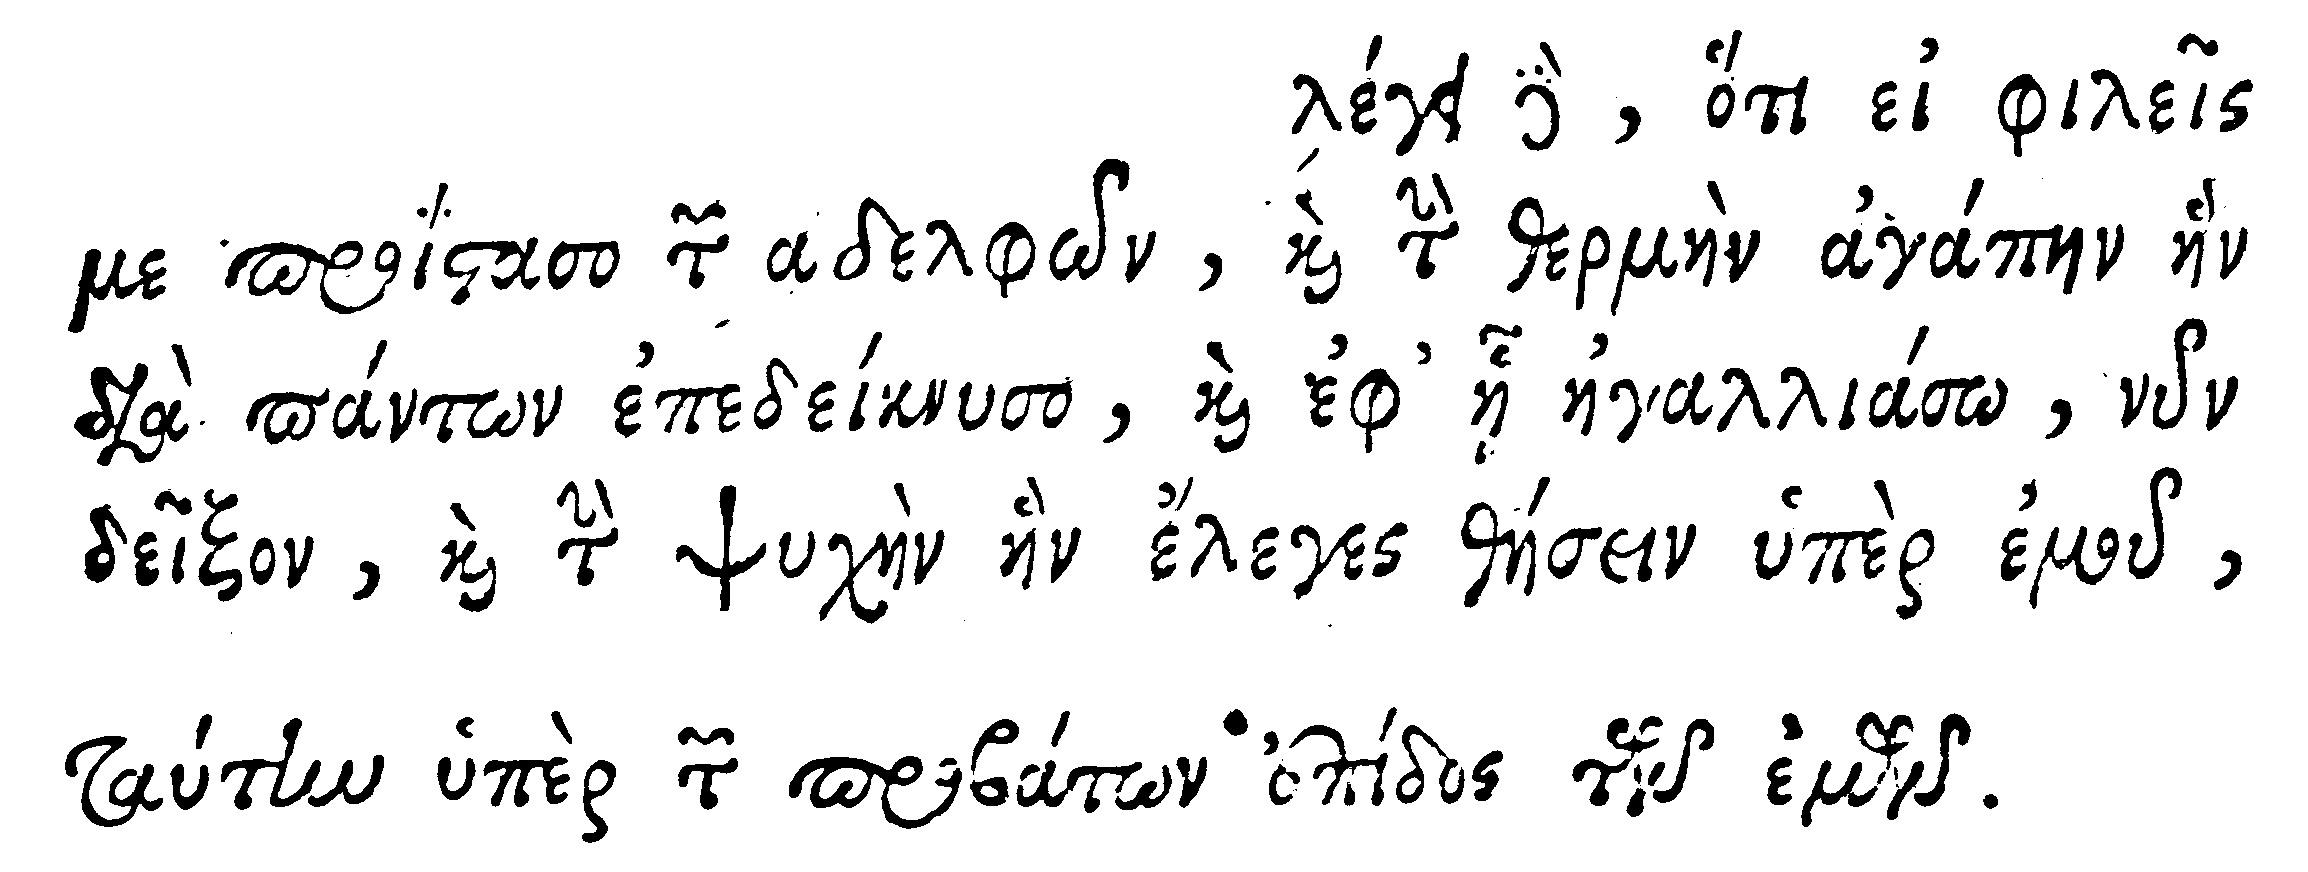 λέγει δὲ, ὅτι εἰ φιλεῖς
με προΐστασο τῶν αδελφῶν, καὶ τὴν θερμὴν ἀγάπην ἣν
διὰ πάντων ἐπεδείκνυσο, καὶ ἐφ' ᾗ ἠγαλλιάσω, νῦν
δεῖξον, καὶ τὴν ψυχὴν ἣν ἔλεγες θήσειν ὑπὲρ ἐμοῦ,
ταύτην ὑπὲρ τῶν προβάτων ἐπίδος τῶν ἐμῶν.